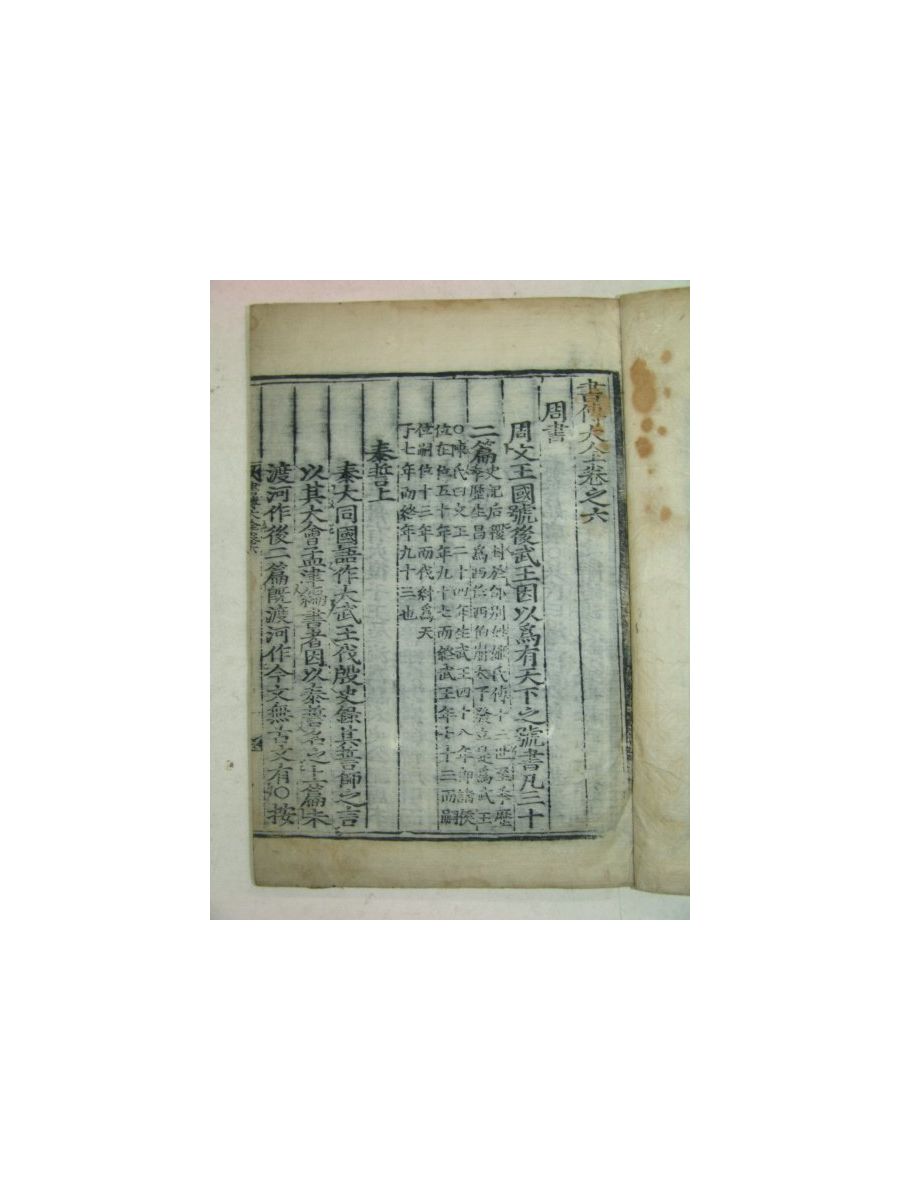 書傳大全卷之六
周書
周文王國號後武王因以爲有天下之號書凡三十
二篇
史記后稷封於邰別姓姬氏傳十二世至季歷
季歷生昌爲西伯西伯崩太子發立是爲武王
○陳氏曰文王二十四年生武王四十八年即諸侯
位在位五十年年九十七而終武王年七十三而嗣
位嗣位十三年而伐紂爲天
子七年而終年九十三也
泰誓上
泰大同國語作大武王伐殷史錄其誓師之言
以其大會孟津編書者因以泰誓名之上篇未
渡河作後二篇旣渡河作今文無古文有○按